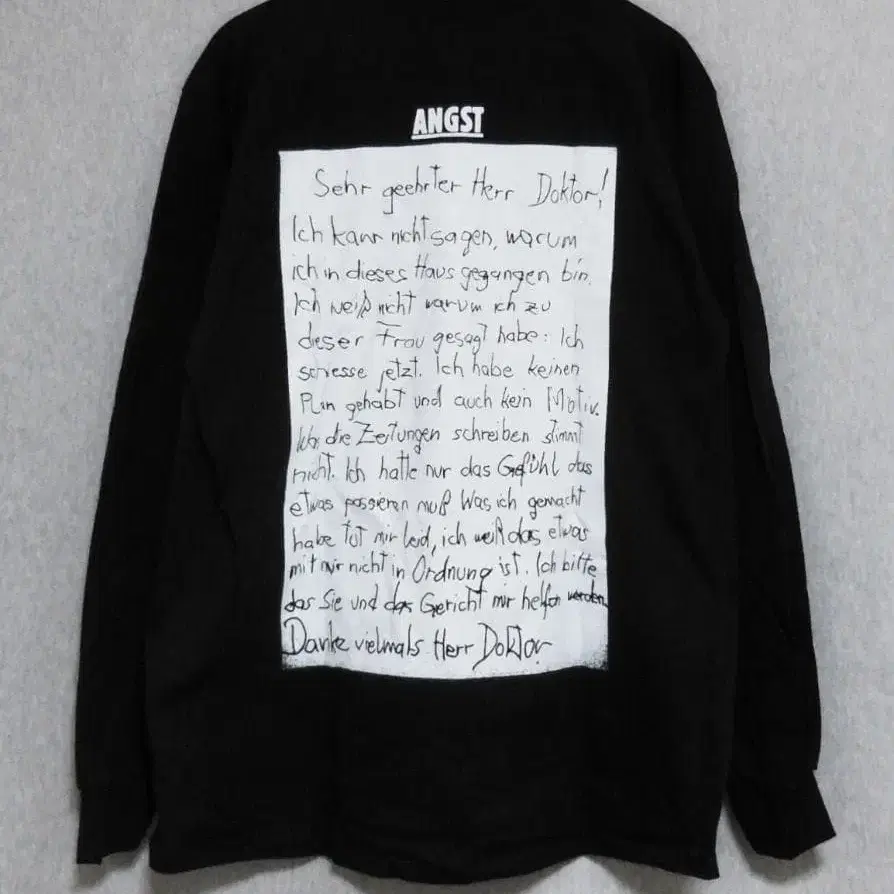 ANGST
Sehr geehrter Herr Doktor!
Ich kann nicht sagen, warum
ich in dieses Haus gegangen bin.
Ich weiß nicht warum ich zu
dieser Frau gesagt habe: Ich
schiesse jetzt. Ich habe keinen
Plan gehabt und auch kein Motiv.
die Zeitungen schreiben stimmt
nicht. Ich hatte nur das Gefühl das
etwas passieren muß Was ich gemacht
habe tut mir leid, ich weiß das etwas
mit mir nicht in Ordnung ist. Ich bitte
das Sie und das Gericht mir helfen werden.
Danke vielmals Herr Doktor.